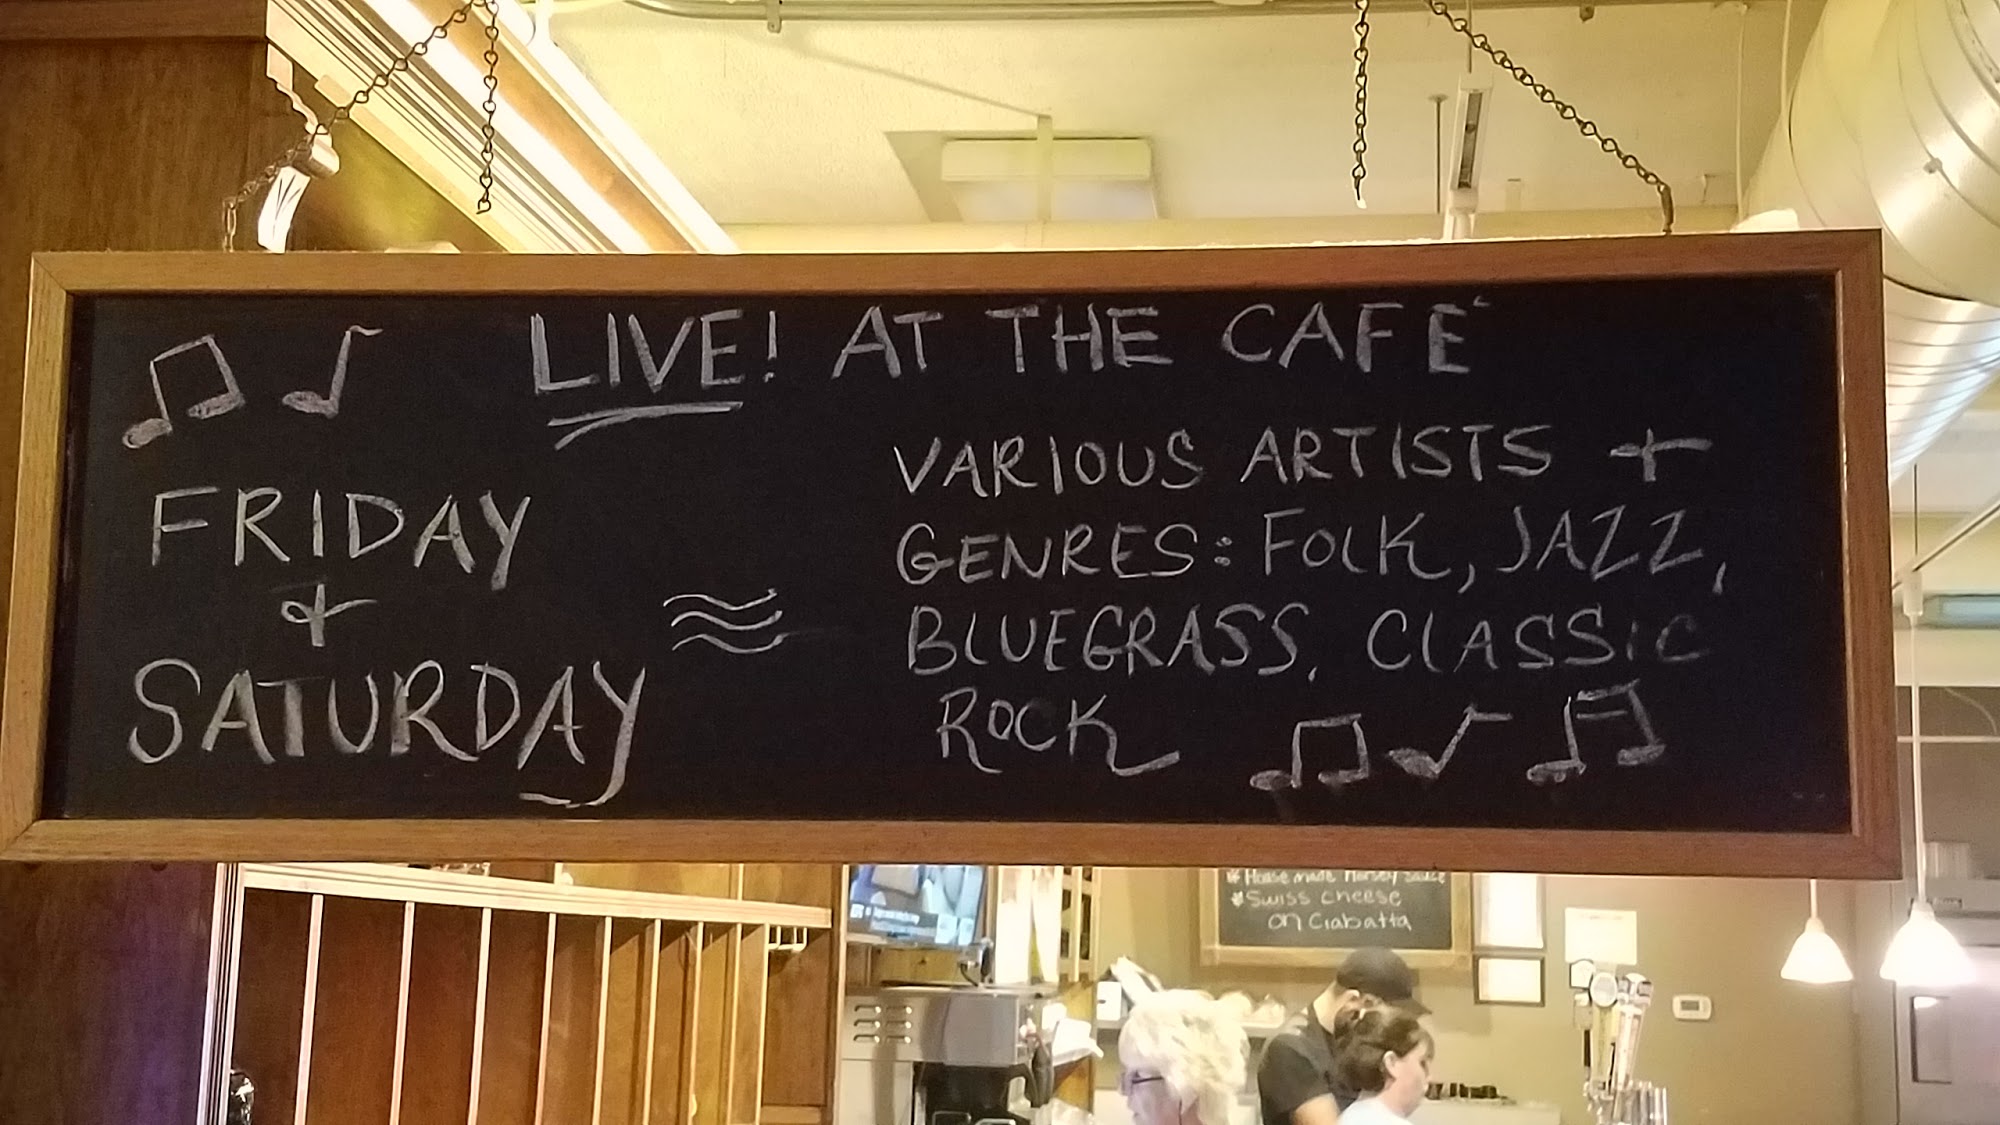 LIVE! AT THE CAFÉ
FRIDAY
+
SATURDAY
VARIOUS ARTISTS +
GENRES: FOLK, JAZZ,
BLUEGRASS, CLASSIC
ROCK
* House made Horsey sauce
* Swiss cheese
on Ciabatta